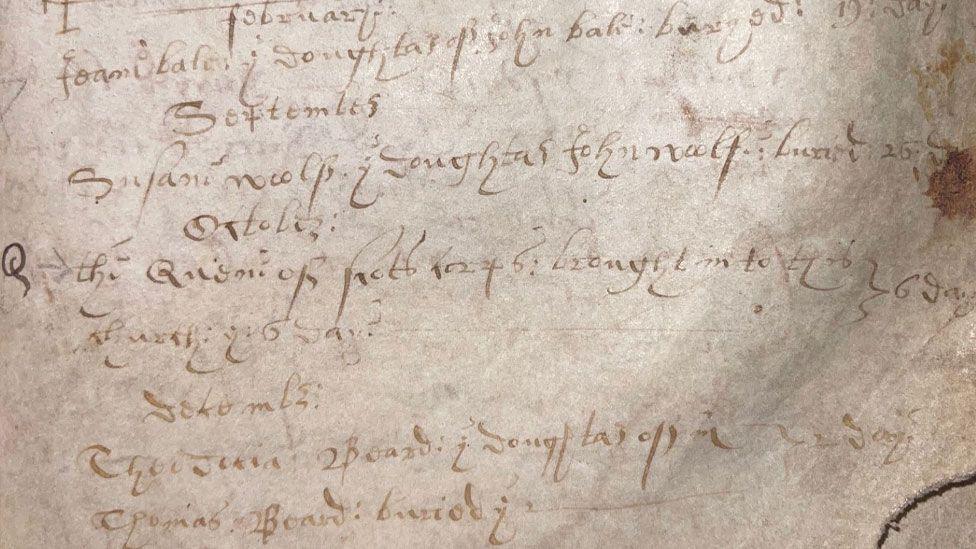 february:
Jeane bale: y doughter of John bale: buryed: 19: day
September
Susane woolf: y doughter John woolf: buried 26: d
October:
Q the Quene of scots corps: brought in to this } 6 day
church: y: 6 day:
december:
Beard: y doughter of 2 day:
Thomas Beard: buried y